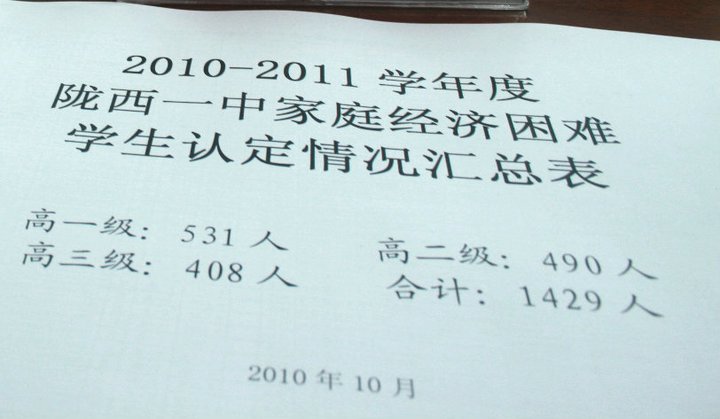 2010-2011 学年度
陇西一中家庭经济困难
学生认定情况汇总表
高一级：531 人 高二级：490 人
高三级：408 人 合计：1429 人
2010 年 10 月